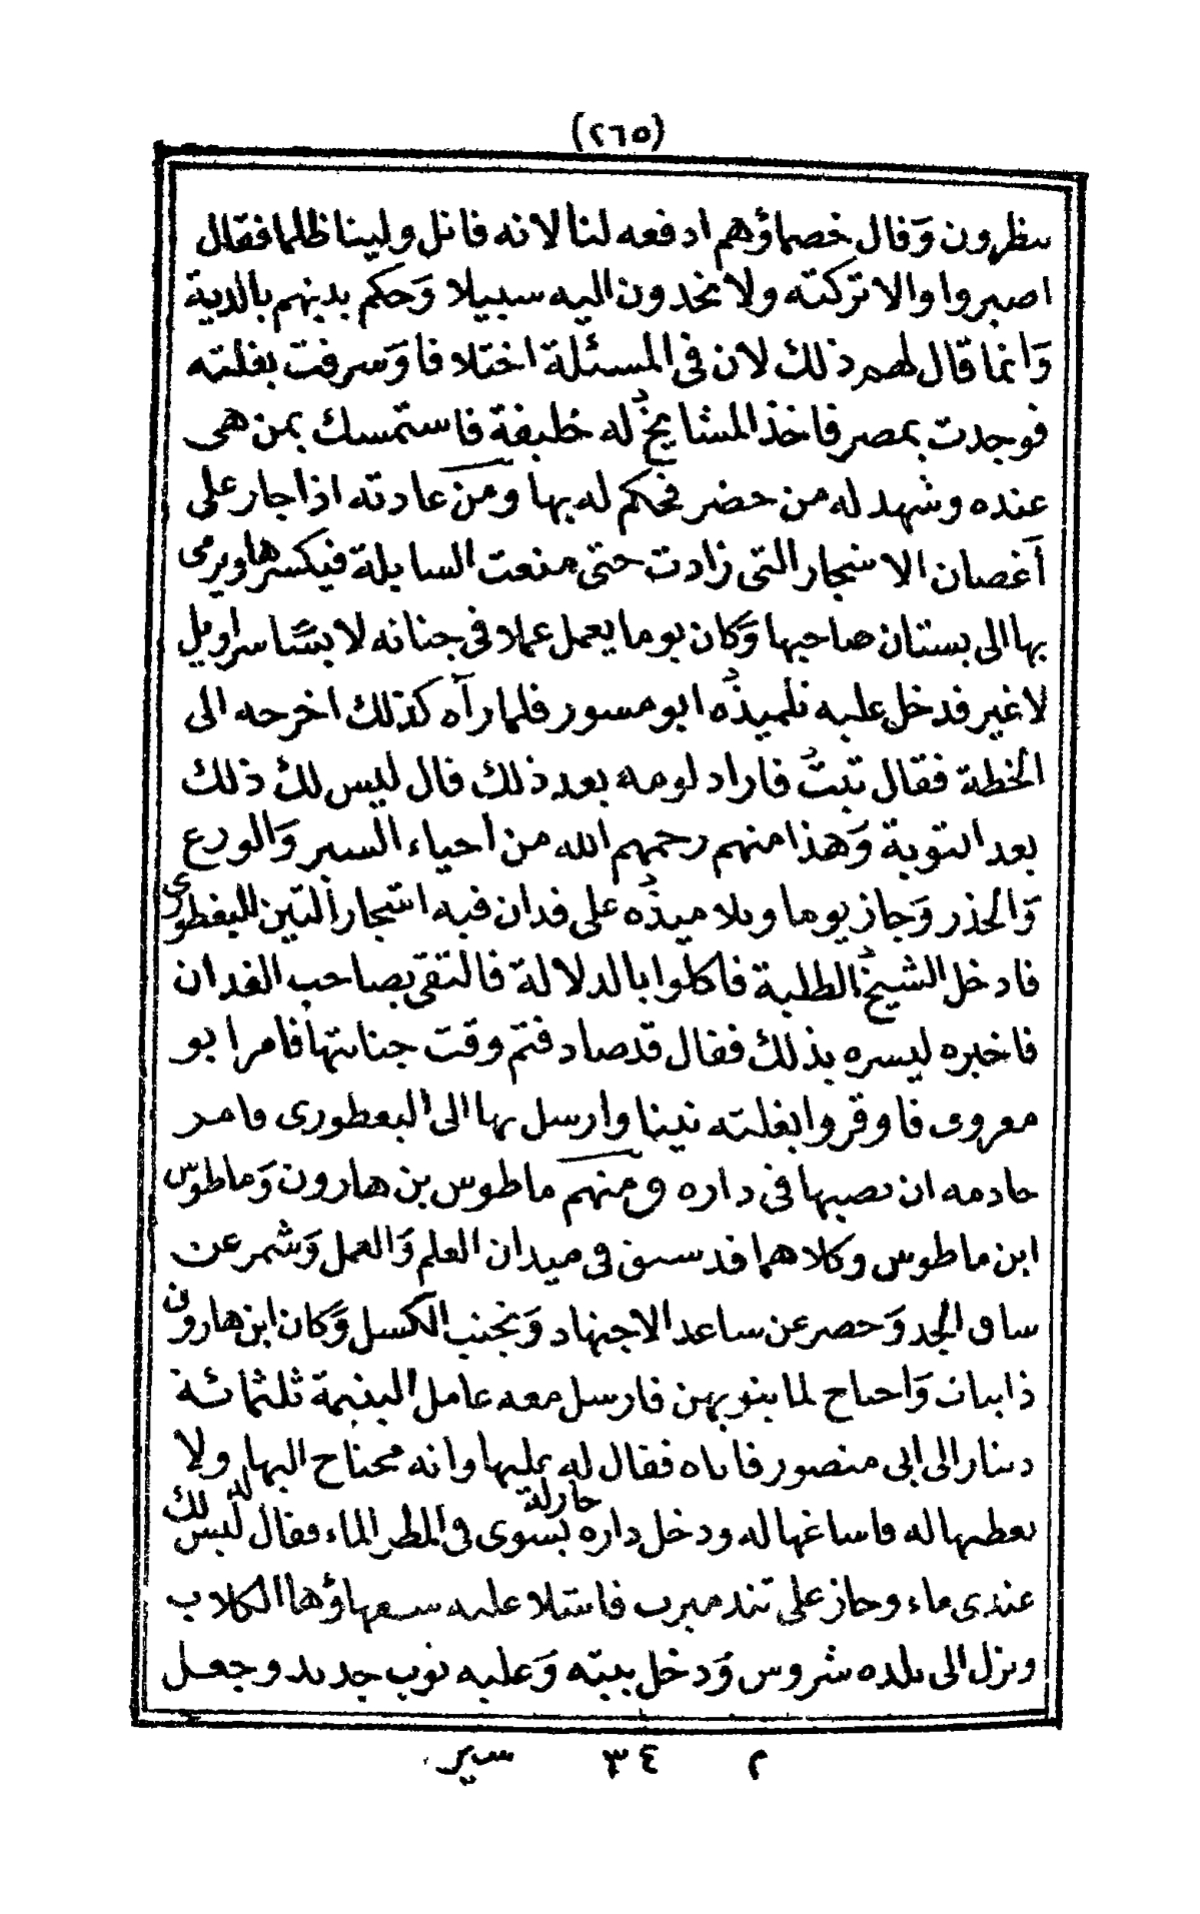 (٢٦٥)
ينظرون وَقال خصماؤهم ادفعه لنا لانه قاتل ولينا ظالما فقال
اصبروا والا تركته ولا تجدون اليه سبيلا وَحكم بدينهم بالدية
وَانما قال لهم ذلك لان فى المسئلة اختلافا وَسرقت بغلته
فوجدت بمصر فاخذ المشايخ له خليفة فاستمسك بمن هى
عنده وشهد له من حضر فحكم له بها ومن عادته اذا جار على
أغصان الاشجار التى زادت حتى منعت السابلة فيكسرها ويرمى
بها الى بستان صاحبها وَكان يوما يعمل عملا فى جنانه لابسًا سراويل
لا غير فدخل عليه تلميذه ابو مسور فلما رآه كذلك اخرجه الى
الخطة فقال تبت فاراد لومه بعد ذلك قال ليس لك ذلك
بعد التوبة وَهذا منهم رحمهم الله من احياء السير وَالورع
وَالحذر وَجاز يوما وتلاميذه على فدان فيه اشجار التين لليغطورى
فادخل الشيخ الطلبة فاكلوا بالدلالة فالتقى بصاحب الفدان
فاخبره ليسره بذلك فقال قد صادفتم وقت جنايتها فامر ابو
معروف فاوقروا بغلته تينا وارسل بها الى اليغطورى فامر
خادمه ان يصبها فى داره ومنهم ماطوس بن هارون وَماطوس
ابن ماطوس وكلاهما قد سبق فى ميدان العلم وَالعمل وَشمر عن
ساق الجد وَحصر عن ساعد الاجتهاد وَتجنب الكسل وَكان ابن هارون
ذا بنات وَاحتاج لما ينوبهن فارسل معه عامل اليتيمة ثلثمائة
دينار الى ابى منصور فاتاه فقال له يمليها وانه محتاج اليها ولا
يعطيها له فاساغها له ودخل داره جار له يسوى فى المطر الماء فقال له ليس لك
عندى ماء وجاز على تندميرت فاستلا عليه سفهاؤها الكلاب
ونزل الى بلده شروس وَدخل بيته وَعليه ثوب جديد وجعل
م ٣٤ سير